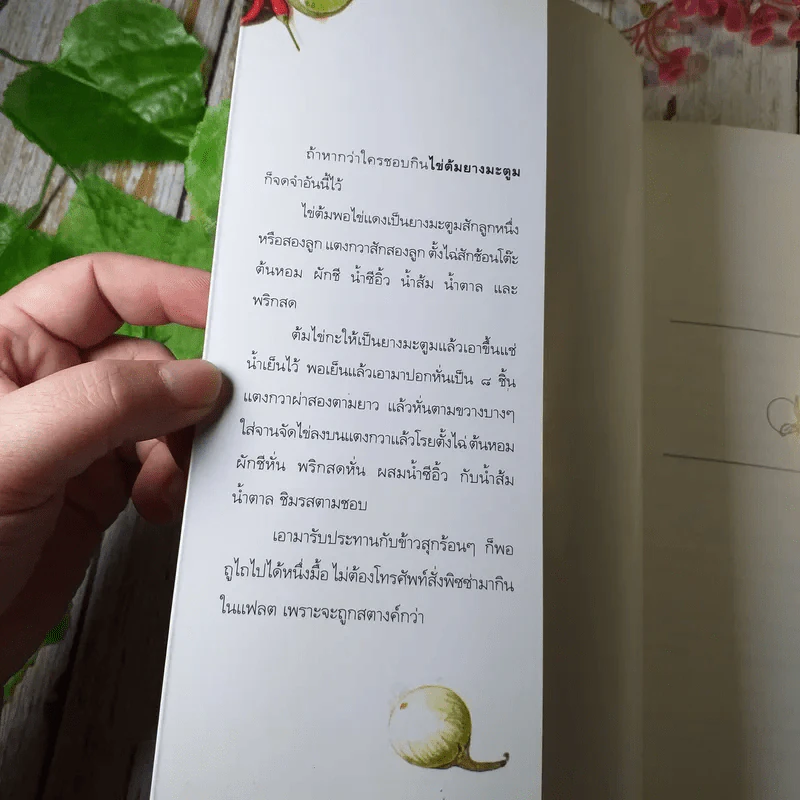 ถ้าหากว่าใครชอบกินไข่ต้มยางมะตูม
ก็จดจำอันนี้ไว้
ไข่ต้มพอไข่แดงเป็นยางมะตูมสักลูกหนึ่ง
หรือสองลูก แตงกวาสักสองลูก ตั้งไฉ่สักช้อนโต๊ะ
ต้นหอม ผักชี น้ำซีอิ้ว น้ำส้ม น้ำตาล และ
พริกสด
ต้มไข่กะให้เป็นยางมะตูมแล้วเอาขึ้นแช่
น้ำเย็นไว้ พอเย็นแล้วเอามาปอกหั่นเป็น ๘ ชิ้น
แตงกวาผ่าสองตามยาว แล้วหั่นตามขวางบางๆ
ใส่จานจัดไข่ลงบนแตงกวาแล้วโรยตั้งไฉ่ ต้นหอม
ผักชีหั่น พริกสดหั่น ผสมน้ำซีอิ้ว กับน้ำส้ม
น้ำตาล ชิมรสตามชอบ
เอามารับประทานกับข้าวสุกร้อนๆ ก็พอ
ถูไถไปได้หนึ่งมื้อ ไม่ต้องโทรศัพท์สั่งพิซซ่ามากิน
ในแฟลต เพราะจะถูกสตางค์กว่า